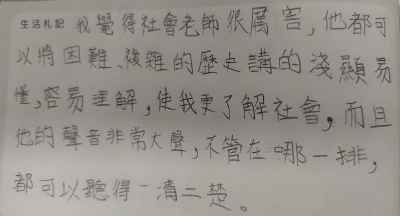 生活札記 我覺得社會老師很厲害，他都可
以將困難、複雜的歷史講的淺顯易
懂，容易理解，使我更了解社會，而且
他的聲音非常大聲，不管在哪一排，
都可以聽得一清二楚。